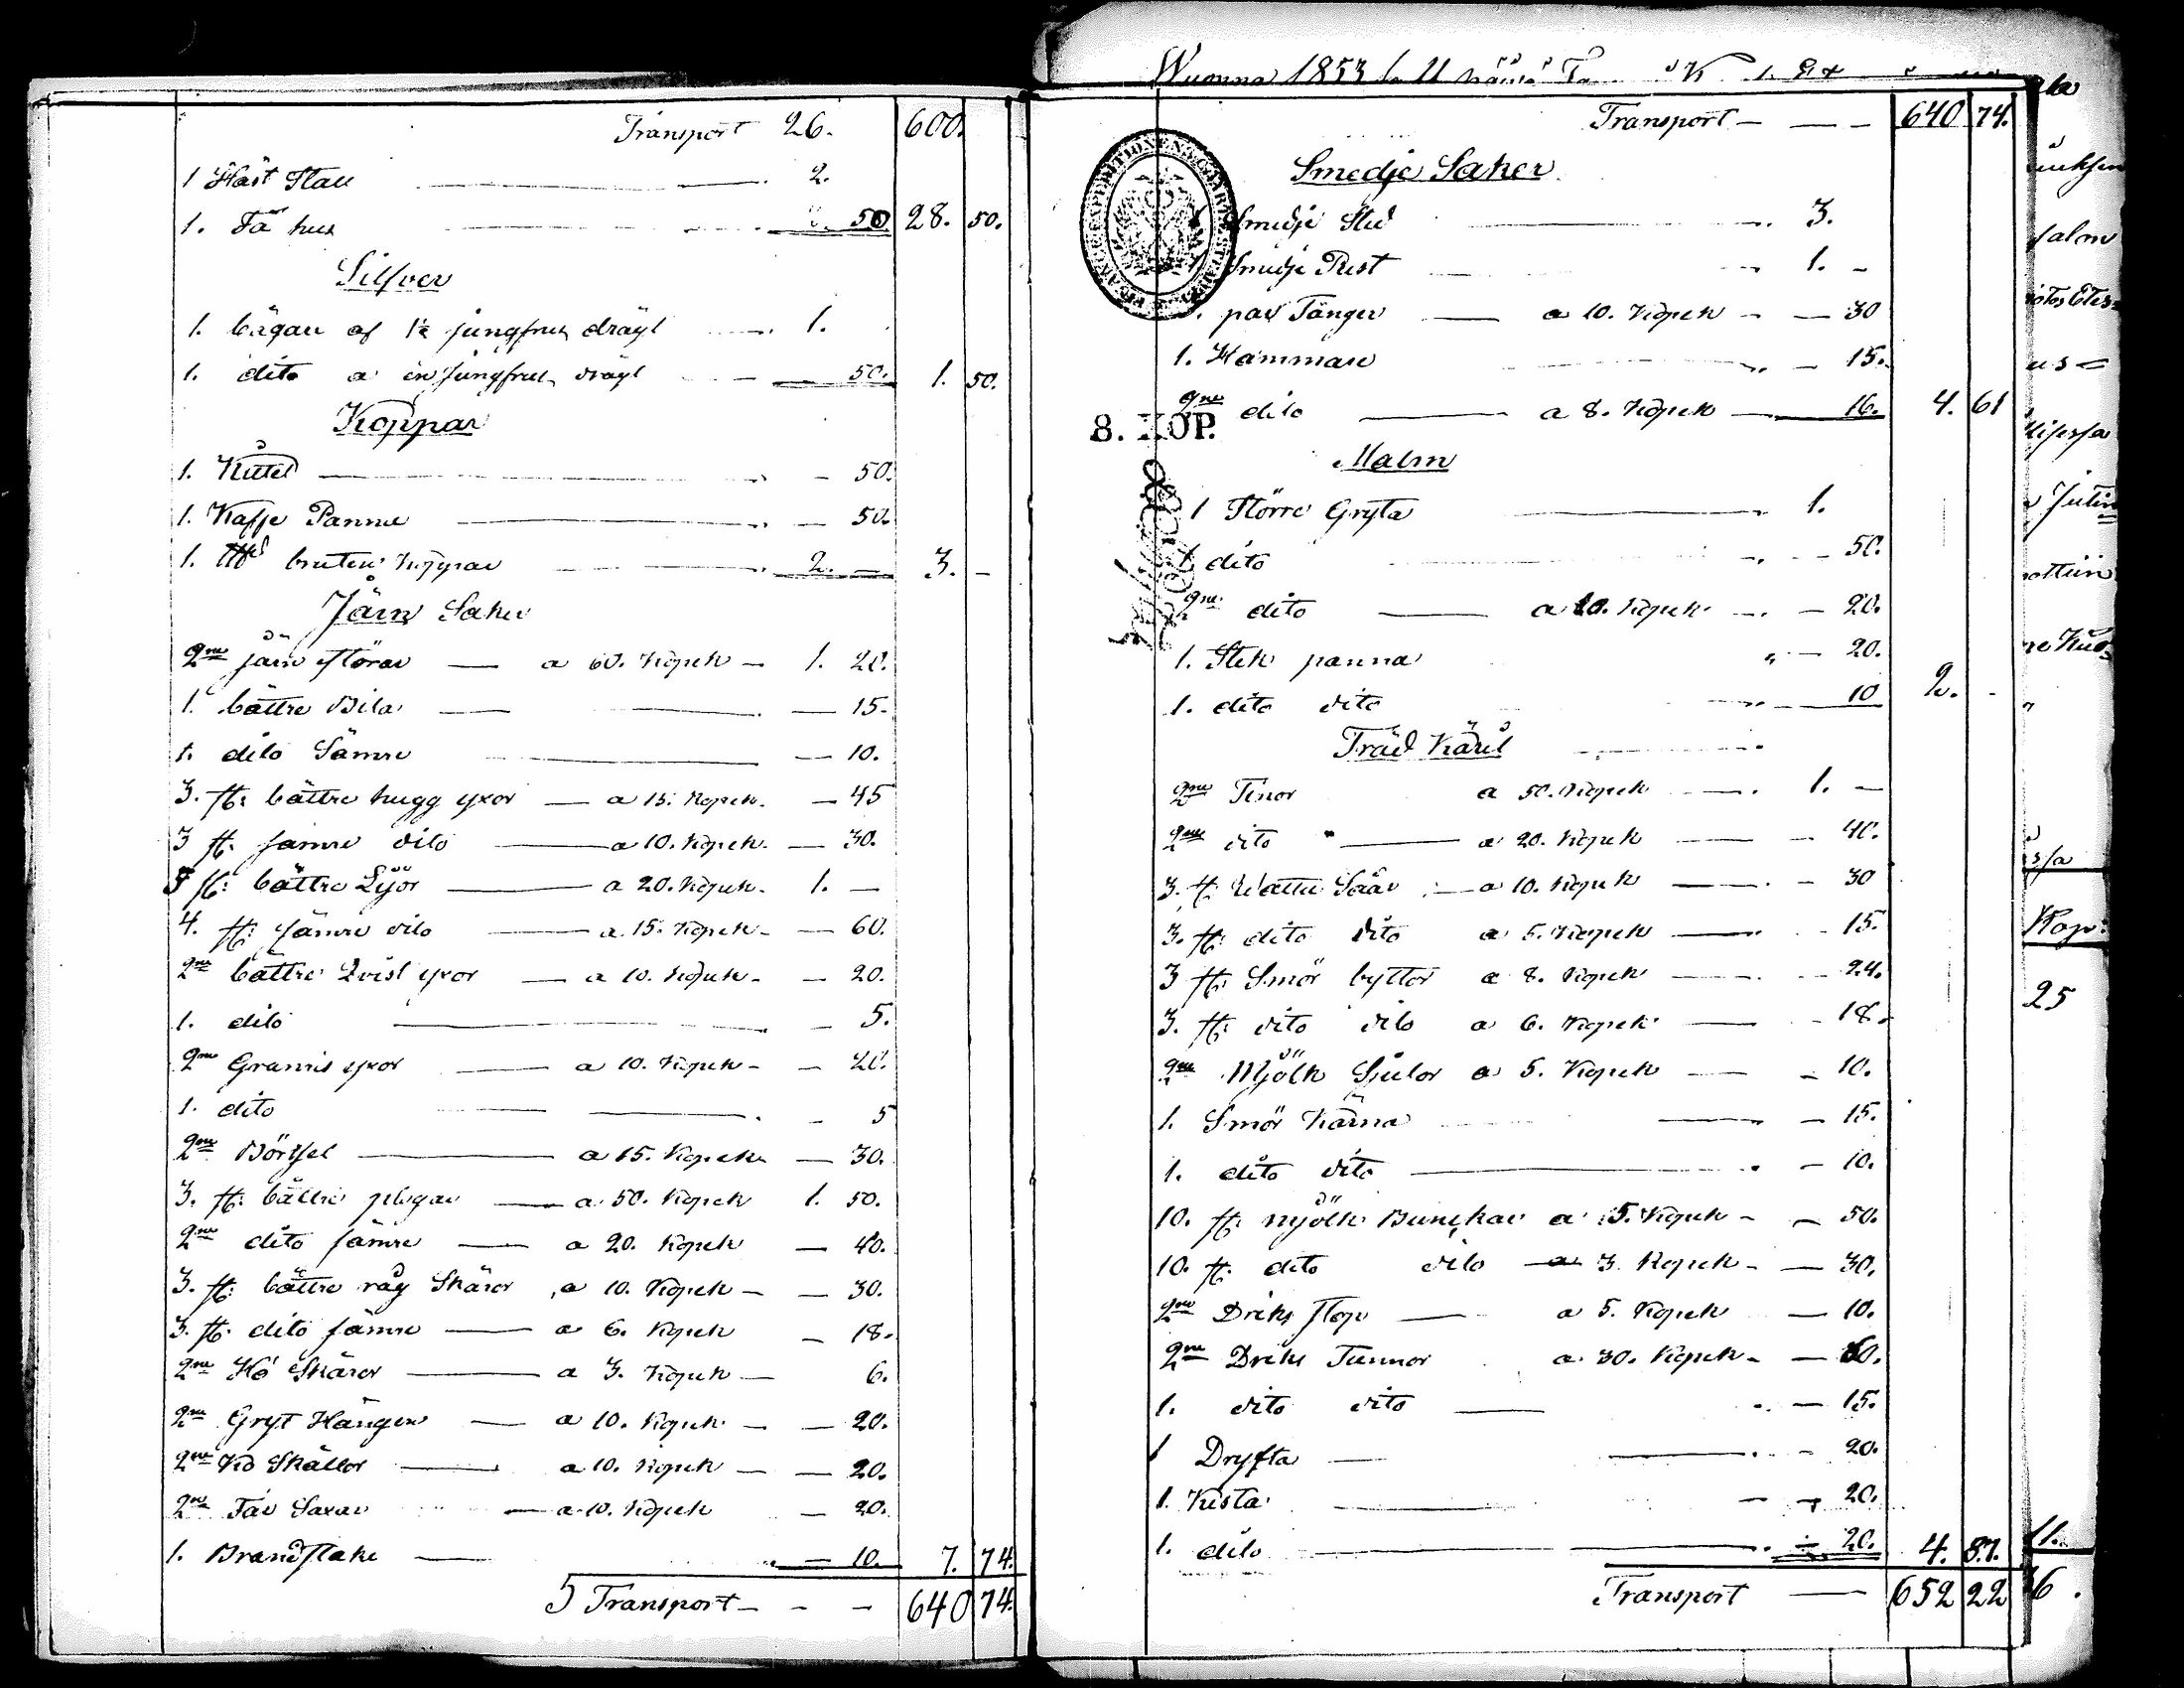 Transport 26. 600.
1 Häst Stall 2.
1. Fä hus 50 28. 50.
Silfver
1. bägare af 1½ jungfrus drägt 1.
1. dito a en jungfrus drägt 50. 1. 50.
Koppar
1. Kittel 50.
1. Kaffe Panna 50.
1. bruten koppar 2. — 3. —
Järn Saker
2ne järn störar — a 60. Kopek — 1. 20.
1. bättre Bila — 15.
1. dito Sämre — 10.
3. st: bättre hugg yxor — a 15. Kopek. — 45
3 st. sämre dito — a 10. Kopek. — 30.
5 st: bättre Lijor — a 20. Kopek. 1. —
4. st: sämre dito — a 15. Kopek — 60.
2ne bättre Qvist yxor — a 10. Kopek — 20.
1. dito — 5.
2ne Granris yxor — a 10. Kopek — 20.
1. dito — 5
2ne Börssel — a 15. Kopek — 30.
3. st: bättre plogar — a 50. Kopek 1. 50.
2ne dito sämre — a 20. Kopek — 40.
3. st: bättre råg Skäror a 10. Kopek — 30.
3. st. dito sämre — a 6. Kopek — 18.
2ne Hö Skäror — a 3. Kopek — 6.
2ne Gryt Hängen — a 10. Kopek — 20.
2ne Ko Skällor — a 10. Kopek — 20.
2ne Får Saxar — a 10. Kopek — 20.
1. Brandstake — 10. 7. 74.
Transport — 640 74.
Wuonna 1853
Transport — 640 74.
Smedje Saker
1 Smedje Städ 3.
1 Smedje Pust 1. —
par Tänger — a 10. Kopek — 30
1. Hammare — 15.
2ne dito — a 8. Kopek — 16. 4. 61
8. KOP.
Malm
1 Större Gryta 1.
1 dito — 50.
2ne dito — a 10. Kopek — 20.
1. Stek panna — 20.
1. dito dito 10 2. —
Träd Käril
2ne Tinor a 50. Kopek — 1. —
2ne dito — a 20. Kopek — 40.
3. st. Watten Såår — a 10. Kopek — 30
3. st: dito dito a 5. Kopek — 15.
3 st: Smör byttor a 8. Kopek — 24.
3. st: dito dito a 6. Kopek — 18.
2ne Mjölk Stilor a 5. Kopek — 10.
1. Smör Kärna — 15.
1. dito dito — 10.
10. st. mjölk Bunckar a 5. Kopek — 50.
10. st. dito dito a 3 Kopek — 30.
2ne Dricks stop — a 5. Kopek — 10.
2ne Dricks Tunnor a 30. Kopek — 60.
1. dito dito — 15.
1 Dryfta — 20.
1. Kista — 20.
1. dito — 20. 4. 87.
Transport — 652 22
25
11.